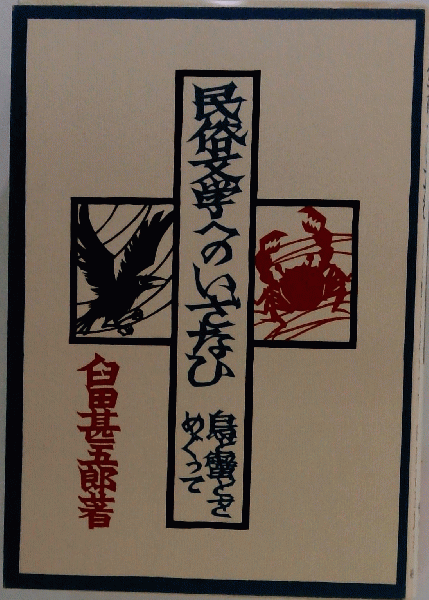 民俗文学へのいざなひ
鳥と蟹とを
めぐって
臼田甚五郎著